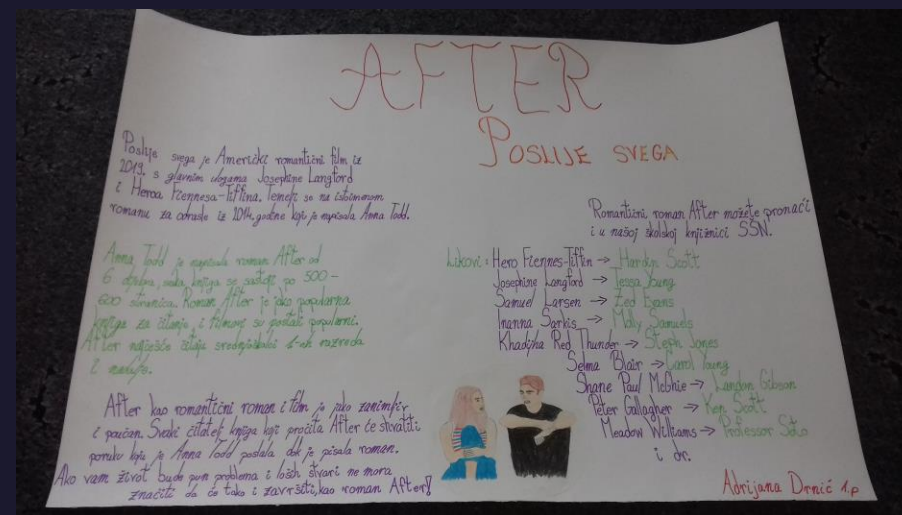 AFTER
POSLIJE SVEGA
Poslije svega je Američki romantični film iz
2019. s glavnim ulogama Josephine Langford
i Heroa Fiennesa-Tiffina. Temelji se na istoimenom
romanu za odrasle iz 2014. godine koji je napisala Anna Todd.
Anna Todd je napisala roman After od
6 dijelova, svaka knjiga se sastoji po 500-
600 stranica. Roman After je jako popularna
knjiga za čitanje, i filmovi su postali popularni.
After najčešće čitaju srednjoškolci 1-ih razreda
i nadalje.
After kao romantični roman i film je jako zanimljiv
i poučan. Svaki čitatelj knjiga koji pročita After će shvatiti
poruku koju je Anna Todd poslala dok je pisala roman.
Ako vam život bude pun problema i loših stvari ne mora
značiti da će tako i završiti, kao roman After!
Romantični roman After možete pronaći
i u našoj školskoj knjižnici SSN.
Likovi: Hero Fiennes-Tiffin → Hardin Scott
Josephine Langford → Tessa Young
Samuel Larsen → Zed Evans
Inanna Sarkis → Molly Samuels
Khadijha Red Thunder → Steph Jones
Selma Blair → Carol Young
Shane Paul McGhie → Landon Gibson
Peter Gallagher → Ken Scott
Meadow Williams → Professor Soto
i dr.
Adrijana Drnić 1.p